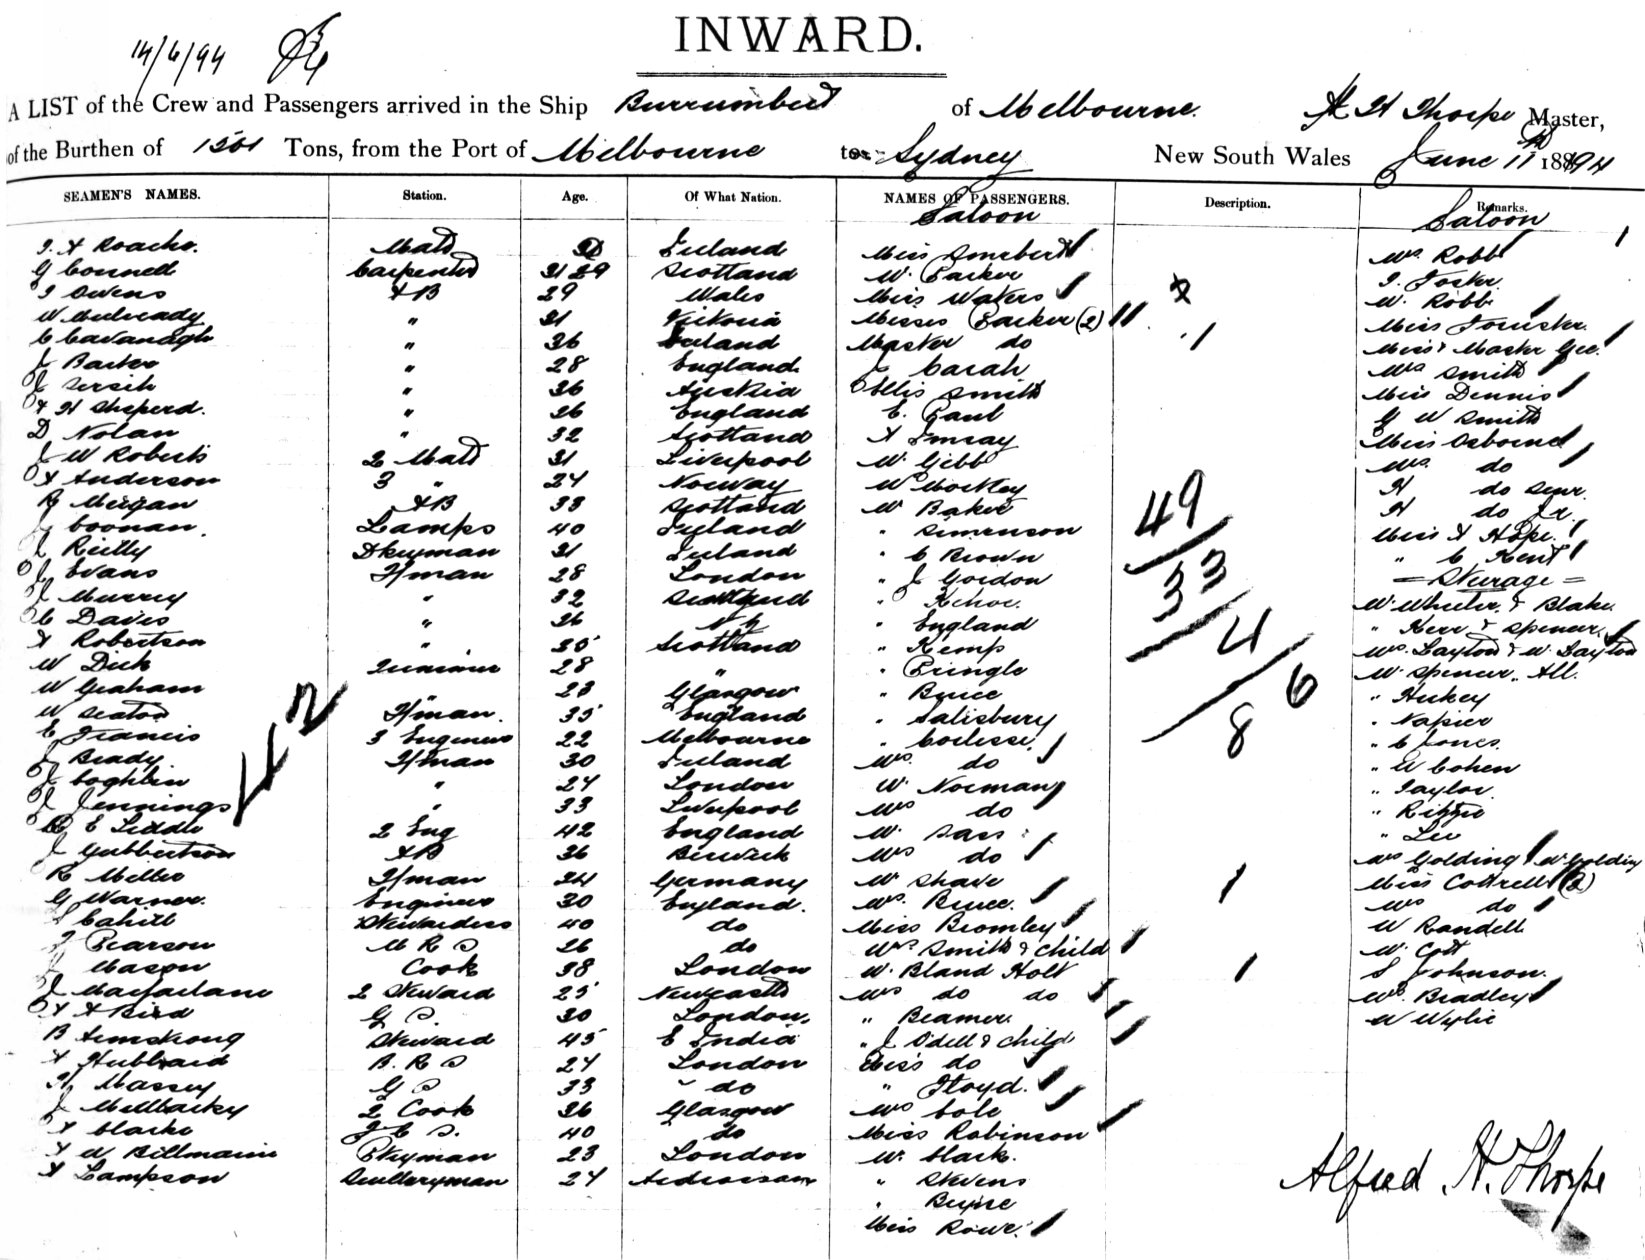 INWARD.
14/6/94
A LIST of the Crew and Passengers arrived in the Ship Burrumbeet of Melbourne. A H Thorpe Master,
of the Burthen of Tons, from the Port of Melbourne to Sydney New South Wales June 11th 1894
SEAMEN'S NAMES. Station. Age. Of What Nation. NAMES OF PASSENGERS. Description. Remarks.
Saloon Saloon
Roache. Mate Ireland Miss Mrs. Robb
G Connell Carpenter 29 Scotland Mr. Parker Foster
Owens AB 29 Wales Miss Waters Mr. Robb
W Mulready " 21 Victoria Misses Parker (2) Miss Forster.
C Cavanagh " 36 Ireland Master do Miss & Master Gee.
J Barker " 28 England. J Carah Mrs Smith
J " 36 Austria Ellis Smith Miss Dennis
A H Sheperd. " 26 England E. Paul G W Smith
D Nolan " 32 Scotland A Imray Miss Osborne
J W Roberts 2 Mate 31 Liverpool W. Gibb Mrs. do
A Anderson 3 " 24 Norway W H do Senr.
Meigan AB 33 Scotland W Baker H do Jr.
J Coonan. Lamps 40 Ireland " Simenson Miss A Hope.
J Reilly Dkeyman 31 Ireland " C Brown " C Kent
J Evans Fman 28 London " J Gordon = Steerage =
J Murray " 32 Scotland " Kehoe. Mr. Wheeler & Blake
C Davis " 26 " England " Kerr & Spencer.
A Robertson " 35 Scotland " Kemp Mrs. Layton & W. Layton
W Dick Trimmer 28 " " Pringle W. Spencer. All.
W Graham " 23 Glasgow " Bruce " Hickey
W Seaton Fman. 35 England " Salisbury " Napier
C Francis 3 Engineer 22 Melbourne " Corlisse. " C Jones.
J Brady. Fman 30 Ireland Mrs. do " W Cohen
J Coghlin " 24 London W. Norman " Taylor.
J Jennings " 33 Liverpool Mrs do " Ritchie
E Liddle 2 Eng 42 England W. Sass " Lee
J Gubbertson AB 36 Berwick Mrs do Mrs Golding & W. Golding
R Meller Fman 24 Germany W Shave Miss Cottrell (2)
G Warner. Engineer 30 England. Mrs. Bruce. Mrs do
Cahill Stewardess 40 do Miss Bromley W Randell
Pearson M R S 26 do Mrs Smith & Child W. Cott
J Mason Cook 38 London W. Bland Holt S Johnson.
J Macfarlane 2 Steward 25 Newcastle Mrs do do Mrs. Bradley
A A Bird G S. 30 London. " Beamer. W Wylie
B Armstrong Steward 45 E India " J Odell & Child
A Hubbard B. R S 24 London Miss do
H Massey G S 33 do " Floyd.
J 2 Cook 26 Glasgow Mrs Cole
A Clarke 40 do Miss Robinson
A W Billmanie Ptryman 23 London W. Clark.
A Lampson Sculleryman 24 Ardrossan " Stevens
" Byrne
Miss Rowe.
42
49
33
4
6
8
Alfred H. Thorpe